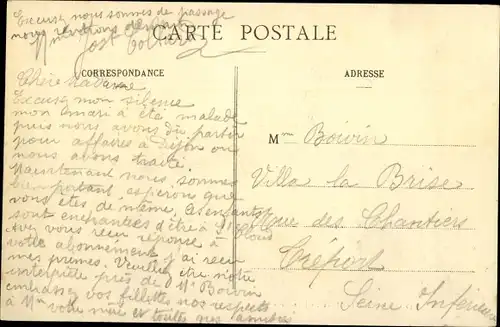 Excusez nous sommes de passage
nous
CARTE POSTALE
CORRESPONDANCE
Chère Madame
Excusez mon silence
mon mari a été malade
puis nous avons dû partir
pour affaires à Dijon où
nous avons traité.
Maintenant nous sommes
bien portant, espérons que
vous êtes de même. Les enfants
sont enchantées d'être à
Avez vous reçu réponse à
votre abonnement j'ai reçu
mes primes. Veuillez être notre
interprète près de Mr Boivin
embrassez vos fillettes nos respects
à Mme votre mère et toutes nos amitiés
ADRESSE
Mme Boivin
Villa la Brise
Rue des Chantiers
Tréport
Seine Inférieure